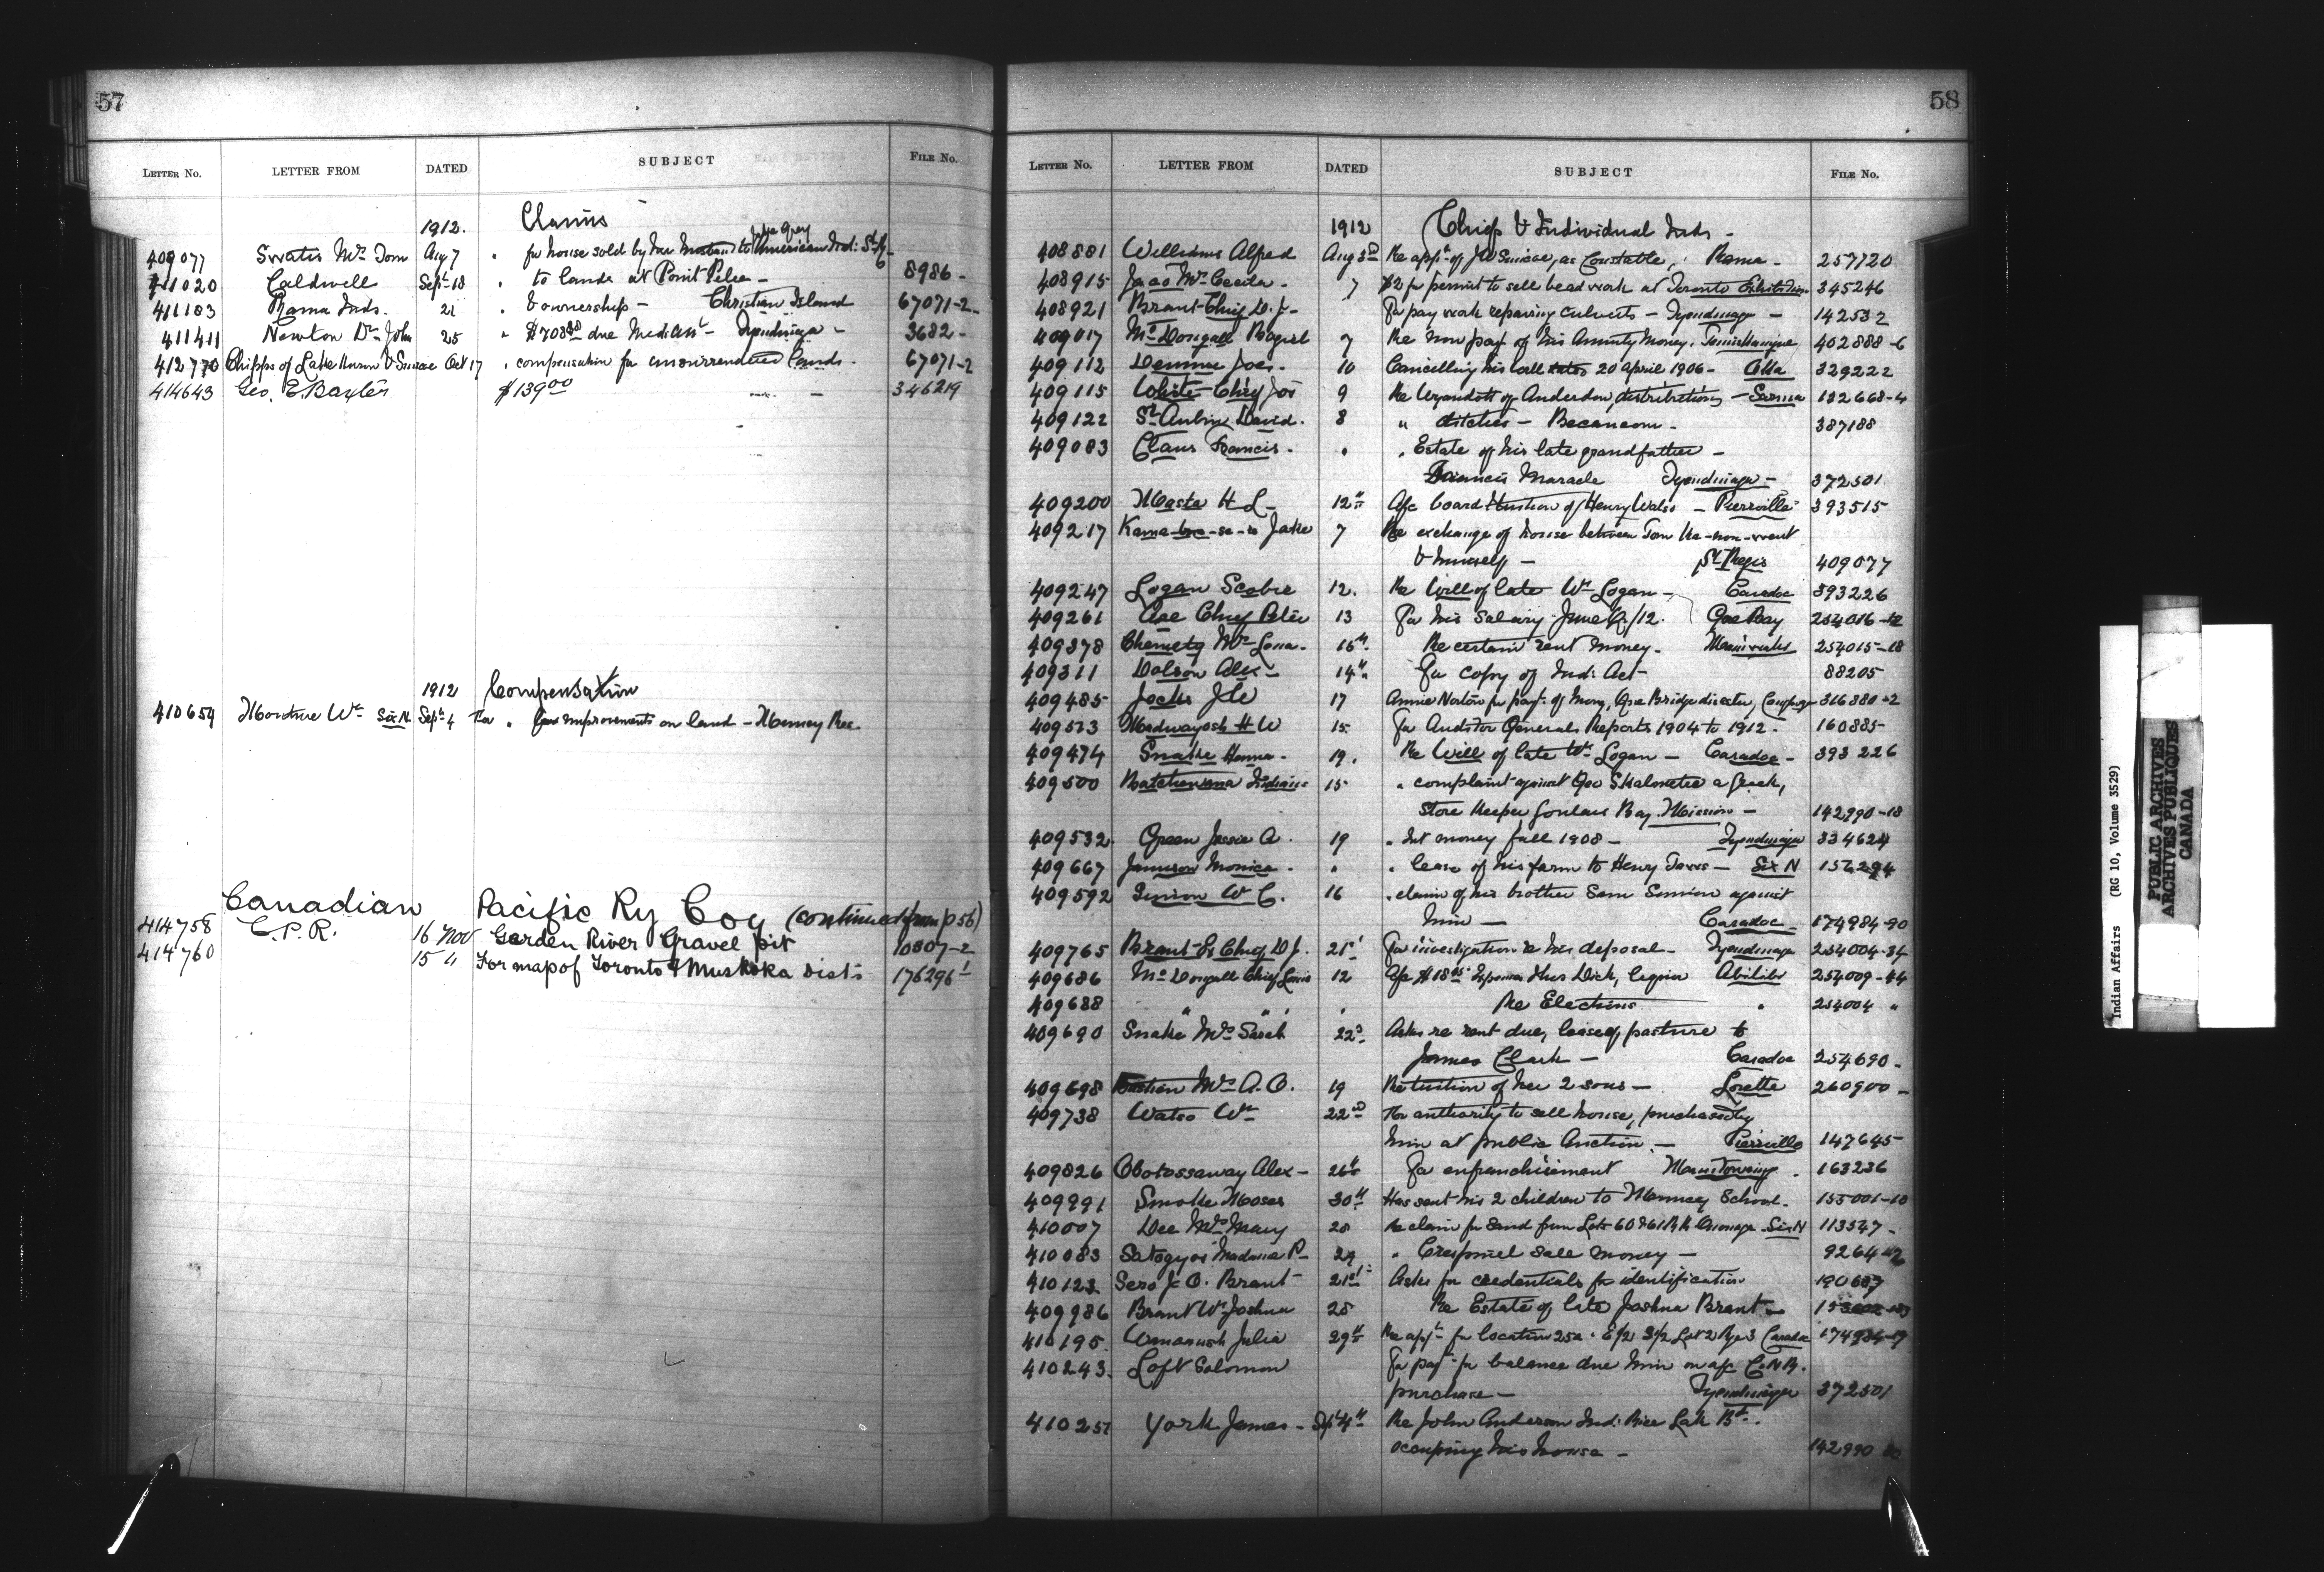 57
LETTER No. LETTER FROM DATED SUBJECT FILE No.
1912. Claims
409077 Swatis Mrs Tom Aug 7 " for house sold by her to American Ind: St R.
411020 Caldwell Sept 18 " to lands at Point Pelee - 8986 -
411183 Rama Inds. 21 " & ownership - Christian Island 67071-2-
411411 Newton Dr John 25 " $708 due Med: Att - Tyendinaga - 3682 -
412770 Chipps of Lake Huron & Simcoe Oct 17 " compensation for unsurrendered lands. 67071-2
414643 Geo. E. Baxter $139.00 - 346219
1912 Compensation
410659 Wm Six N. Sept 4 For " improvements on land - Munsey Res
Canadian Pacific Ry Coy (continued from p 56)
414758 C.P.R. 16 Nov Garden River Gravel pit 10807-2
414760 15 " For map of Toronto & Muskoka Dists 176296-1
58
LETTER No. LETTER FROM DATED SUBJECT FILE No.
1912 Chiefs & Individual Inds -
408881 Williams Alfred Aug 3rd Re appt of J W Simcoe, as Constable, Rama - 257720
408915 Mrs Cecilia - 7 $2 for permit to sell beadwork at Toronto Exhibition 345246
408921 Brant Chief D. J - For pay work repairing culverts - Tyendinaga - 142532
409017 McDougall 7 Re non payt of his Annuity Money. Temiskamingue 402888-6
409112 Jos. 10 Cancelling his will 20 April 1906 - 329222
409115 White Chief Jos 9 Re Wyandott of Anderdon, distributions - Sarnia 132668-4
409122 St Aubin David. 8 " ditches - Becancour - 387188
409083 Claus Francis. " " Estate of his late grandfather -
Francis Maracle Tyendinaga - 372501
409200 Masta H L - 12th A/c board tuition of Henry Watso - Pierreville 393515
409217 Jake 7 Re exchange of house between Tom
& himself - St Regis 409077
409247 Logan Scobie 12. Re Will of late Wm Logan - Caradoc 393226
409261 Chief Peter 13 For his salary June Qr/12. Gore Bay 254016-12
409378 Mrs 16th Re certain rent money - 254015-18
409311 Dolson Alex - 14th For copy of Ind: Act - 88205
409485 Jocks J W 17 Annie Norton for payt of 316380-2
409513 Madwayosh H W 15 For Auditor Generals Reports 1904 to 1912. 160885-
409474 Snake 19. Re Will of late Wm Logan - Caradoc - 393226
409500 Batchewana Indians 15 " complaint against Geo a Greek,
Store Keeper Goulais Bay Mission - 142990-18
409532 Green Jessie A. 19 " Int money fall 1908 - Tyendinaga 334624
409667 Jamieson Monica - " " lease of his farm to Henry - Six N 156294
409592 Simion W C. 16 " claim of his brother Sam Simion against
him - Caradoc - 174984-90
409765 Brant Ex Chief D J. 21st For investigation re his deposal - Tyendinaga 254004-34
409686 McDougall Chief Louis 12 Dick, liquor Abitibi 254009-44
409688 " " " Re Elections " 254004 "
409690 Snake Mrs Sarah 22nd Asks re rent due, lease of pasture to
James Clark - Caradoc 254690 -
409698 Bastien Mrs A. O. 19 Re tuition of her 2 sons - Lorette 260900 -
409738 Watso Wm 22nd For authority to sell house, purchased by
him at public Auction - Pierreville 147645-
409826 Obotossaway Alex - 26th For enfranchisement Manitowaning. 163236
409991 Smoke Moses 30th Has sent his 2 children to Munsey School. 155001-10
410007 Dee Mrs Mary 28 Re claim for sand from Lots 60 & 61 R R Onondaga Six N 113347 -
410083 Madame P - 29 " Crespieul sale money - 9264-2
410123 Sero J. O. Brant 21st Asks for credentials for identification
409986 Brant Wm Joshua 28 Re Estate of late Joshua Brant -
410195. Julia 29th Re appn for location 25a. E/2 S/2 Lot 2 Rge 3 Caradoc 174984-19
410243. Loft Solomon For payt for balance due him on a/c C.N.R.
purchase - Tyendinaga 372501
410257 York James - Sept 4th Re John Anderson Ind: Rice Lake Bd.
occupying his house - 142990
Indian Affairs (RG 10, Volume 3529)
PUBLIC ARCHIVES
ARCHIVES PUBLIQUES
CANADA